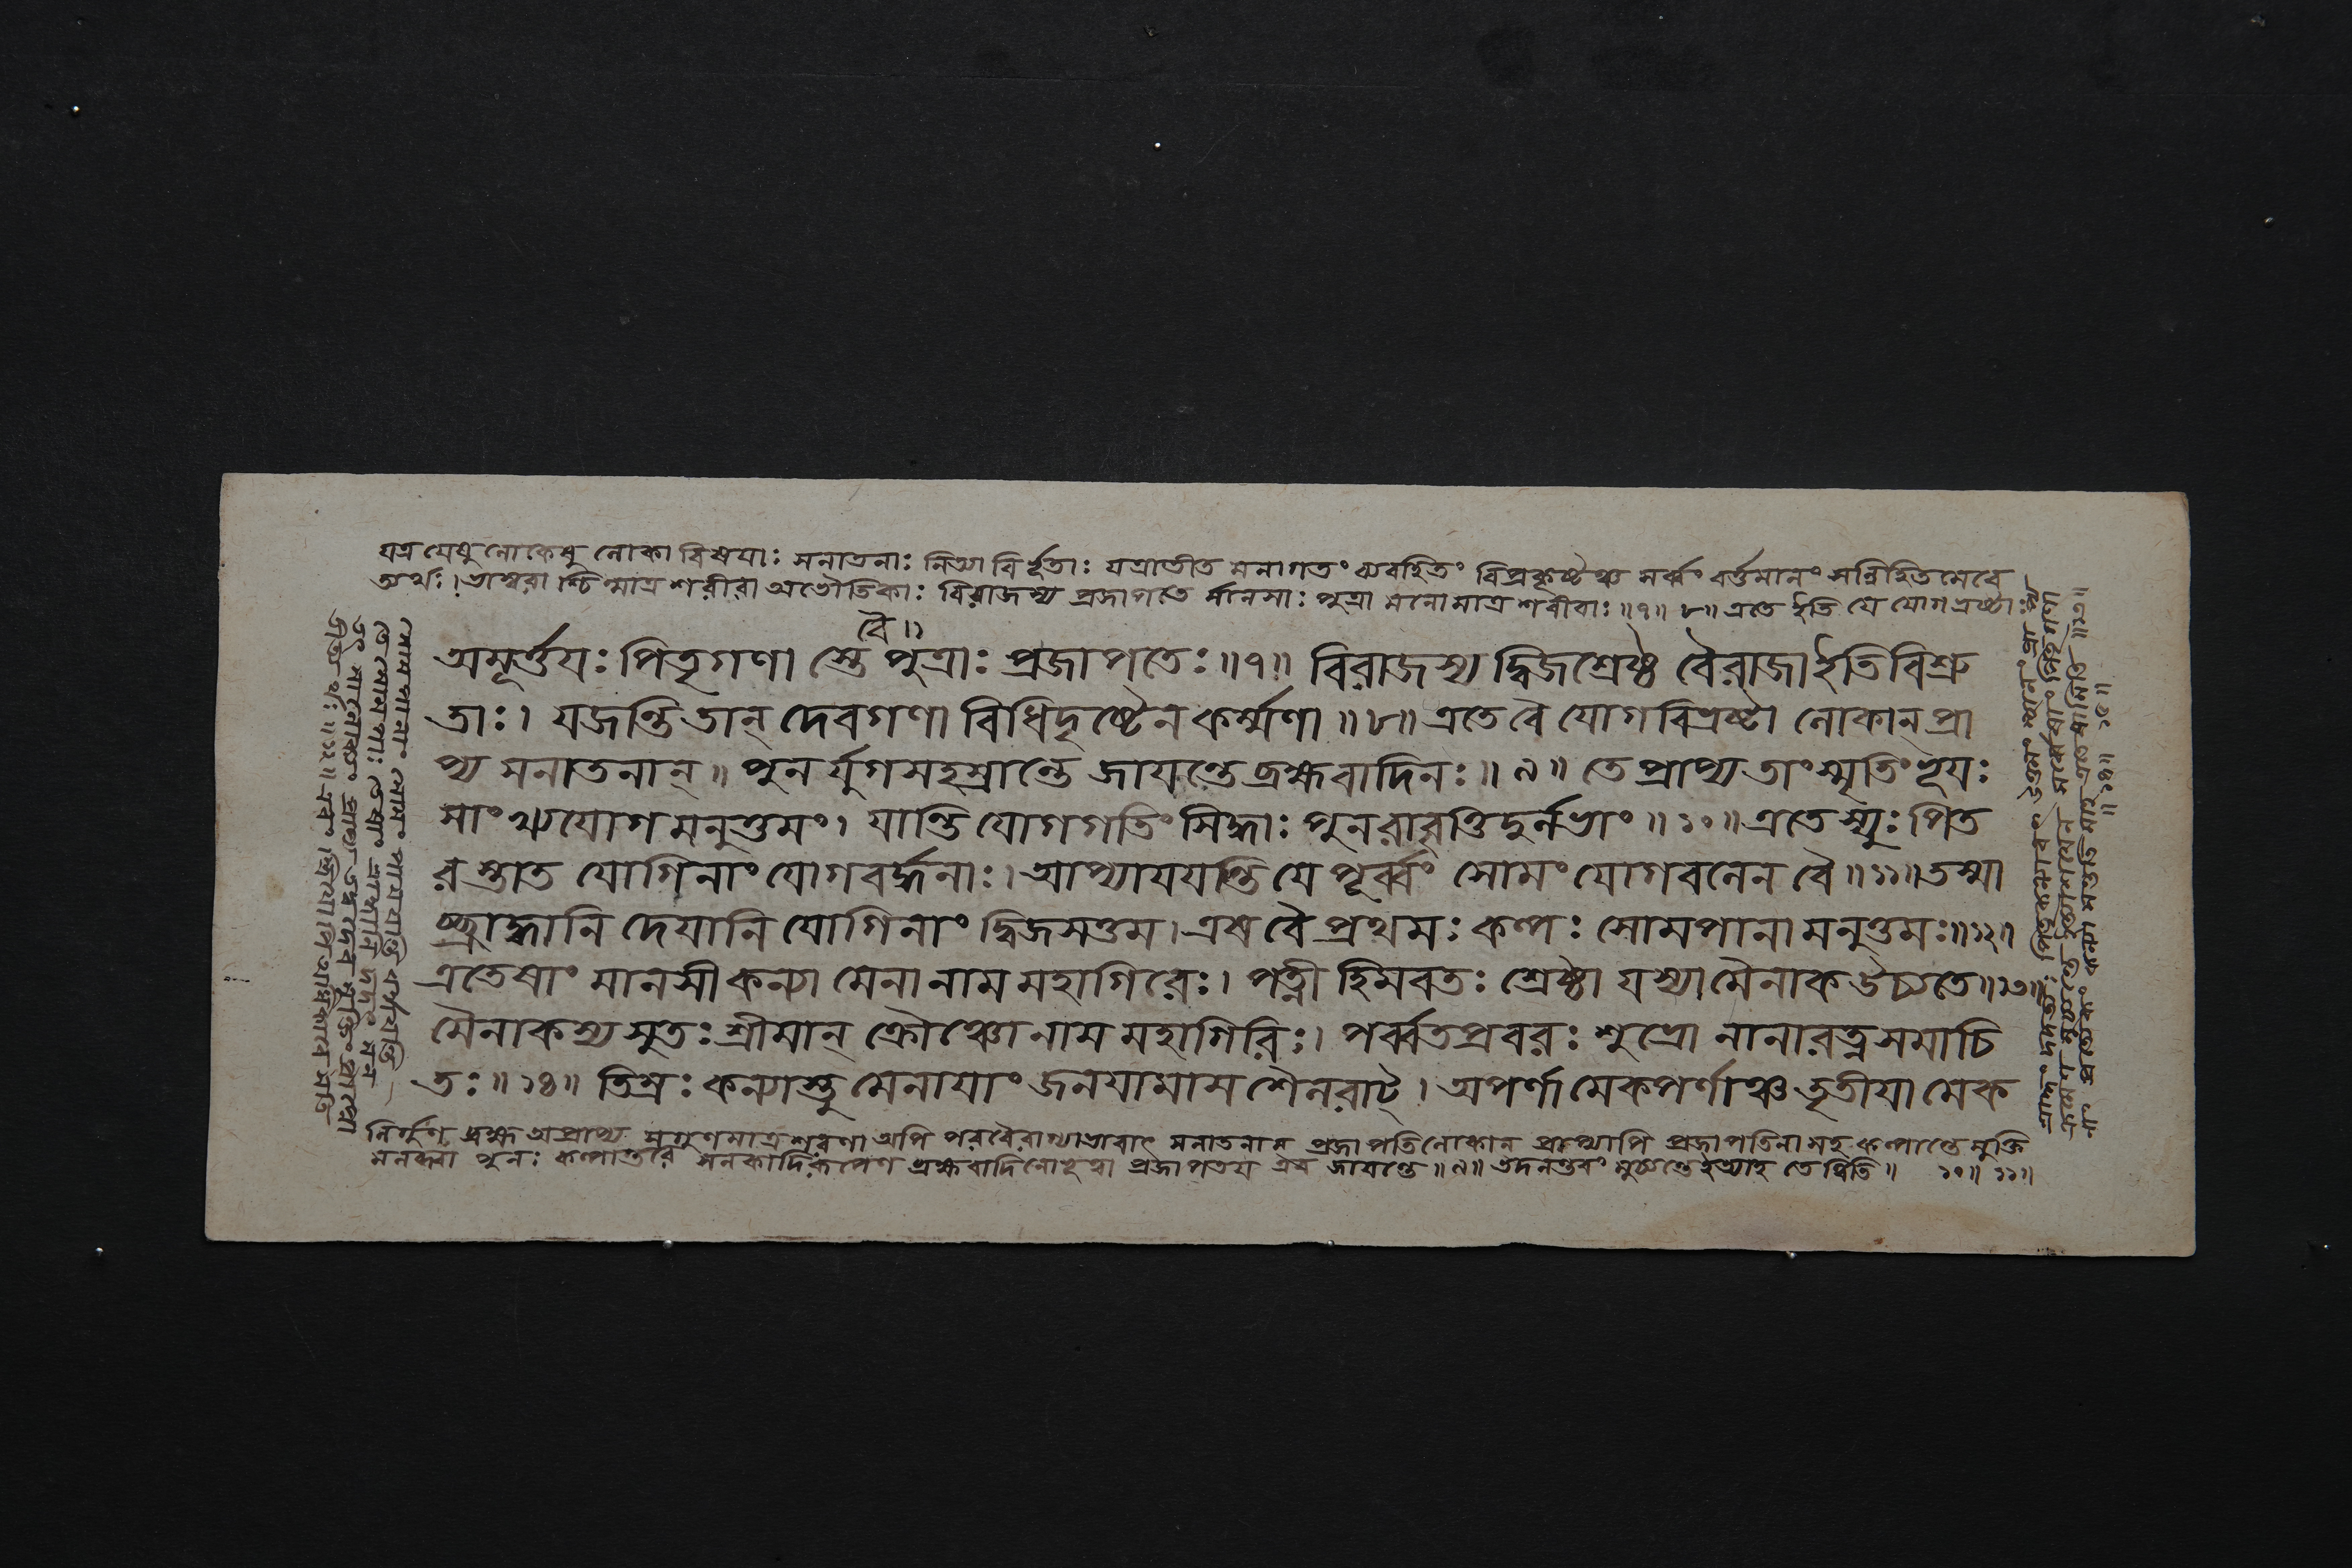 যত্র যেষু লোকেষু লোকা বিষয়াঃ সনাতনাঃ নিত্যাবির্ভূতাঃ যত্রাতীত মনাগতং ব্যবহিতং বিপ্রকৃষ্টঞ্চ সর্ব্বং বর্ত্তমানং সন্নিহিতমেবে
অর্থঃ। ভাস্বরা শ্চিন্মাত্র শরীরা অভৌতিকাঃ বিরাজস্য প্রজাপতে র্মানসাঃ পুত্রা মনোমাত্র শরীরাঃ॥৭॥ ৮॥ এতে ইতি যে যোগভ্রষ্টাঃ
বৈ॥
অমূর্ত্তয়ঃ পিতৃগণা স্তে পুত্রাঃ প্রজাপতেঃ॥৭॥ বিরাজস্য দ্বিজশ্রেষ্ঠ বৈরাজা ইতি বিশ্রু
তাঃ। যজন্তি তান্ দেবগণা বিধিদৃষ্টেন কর্ম্মণা॥৮॥ এতে বৈ যোগবিভ্রষ্টা লোকান্ প্রা
প্য সনাতনান্॥ পুন র্যুগসহস্রান্তে জায়ন্তে ব্রহ্মবাদিনঃ॥৯॥ তে প্রাপ্য তাং স্মৃতিং ভূয়ঃ
সাংখ্যযোগ মনুত্তমং। যান্তি যোগগতিং সিদ্ধাঃ পুনরাবৃত্তিদুর্লভাং॥১০॥ এতে স্যুঃ পিত
র স্তাত যোগিনাং যোগবর্দ্ধনাঃ। আপ্যায়য়ন্তি যে পূর্ব্বং সোমং যোগবলেন বৈ॥১১॥ তস্মা
চ্ছ্রাদ্ধানি দেয়ানি যোগিনাং দ্বিজসত্তম। এষ বৈ প্রথমঃ কল্পঃ সোমপানা মনুত্তমঃ॥১২॥
এতেষাং মানসী কন্যা মেনা নাম মহাগিরেঃ। পত্নী হিমবতঃ শ্রেষ্ঠা যস্যা মৈনাক উচ্যতে॥১৩॥
মৈনাকস্য সুতঃ শ্রীমান্ ক্রৌঞ্চো নাম মহাগিরিঃ। পর্ব্বতপ্রবরঃ শুভ্রো নানারত্নসমাচি
তঃ॥১৪॥ তিস্রঃ কন্যাস্তু মেনায়াং জনয়ামাস শৈলরাট্। অপর্ণা মেকপর্ণাঞ্চ তৃতীয়া মেক
নির্গুণ ব্রহ্ম অপ্রাপ্য সগুণমাত্রশরণা অপি পরবৈরাগ্যাভাবাৎ সনাতনান্ প্রজাপতিলোকান্ প্রাপ্যাপি প্রজাপতিনা সহ কল্পান্তে মুক্তি
মলব্ধ্বা পুনঃ কল্পান্তরে সনকাদিরূপেণ ব্রহ্মবাদিনোভূত্বা প্রজাপতয় এব জায়ন্তে॥৯॥ তদনন্তরং মুচ্যন্তে ইত্যাহ তে ত্বিতি॥ ১০॥ ১১॥